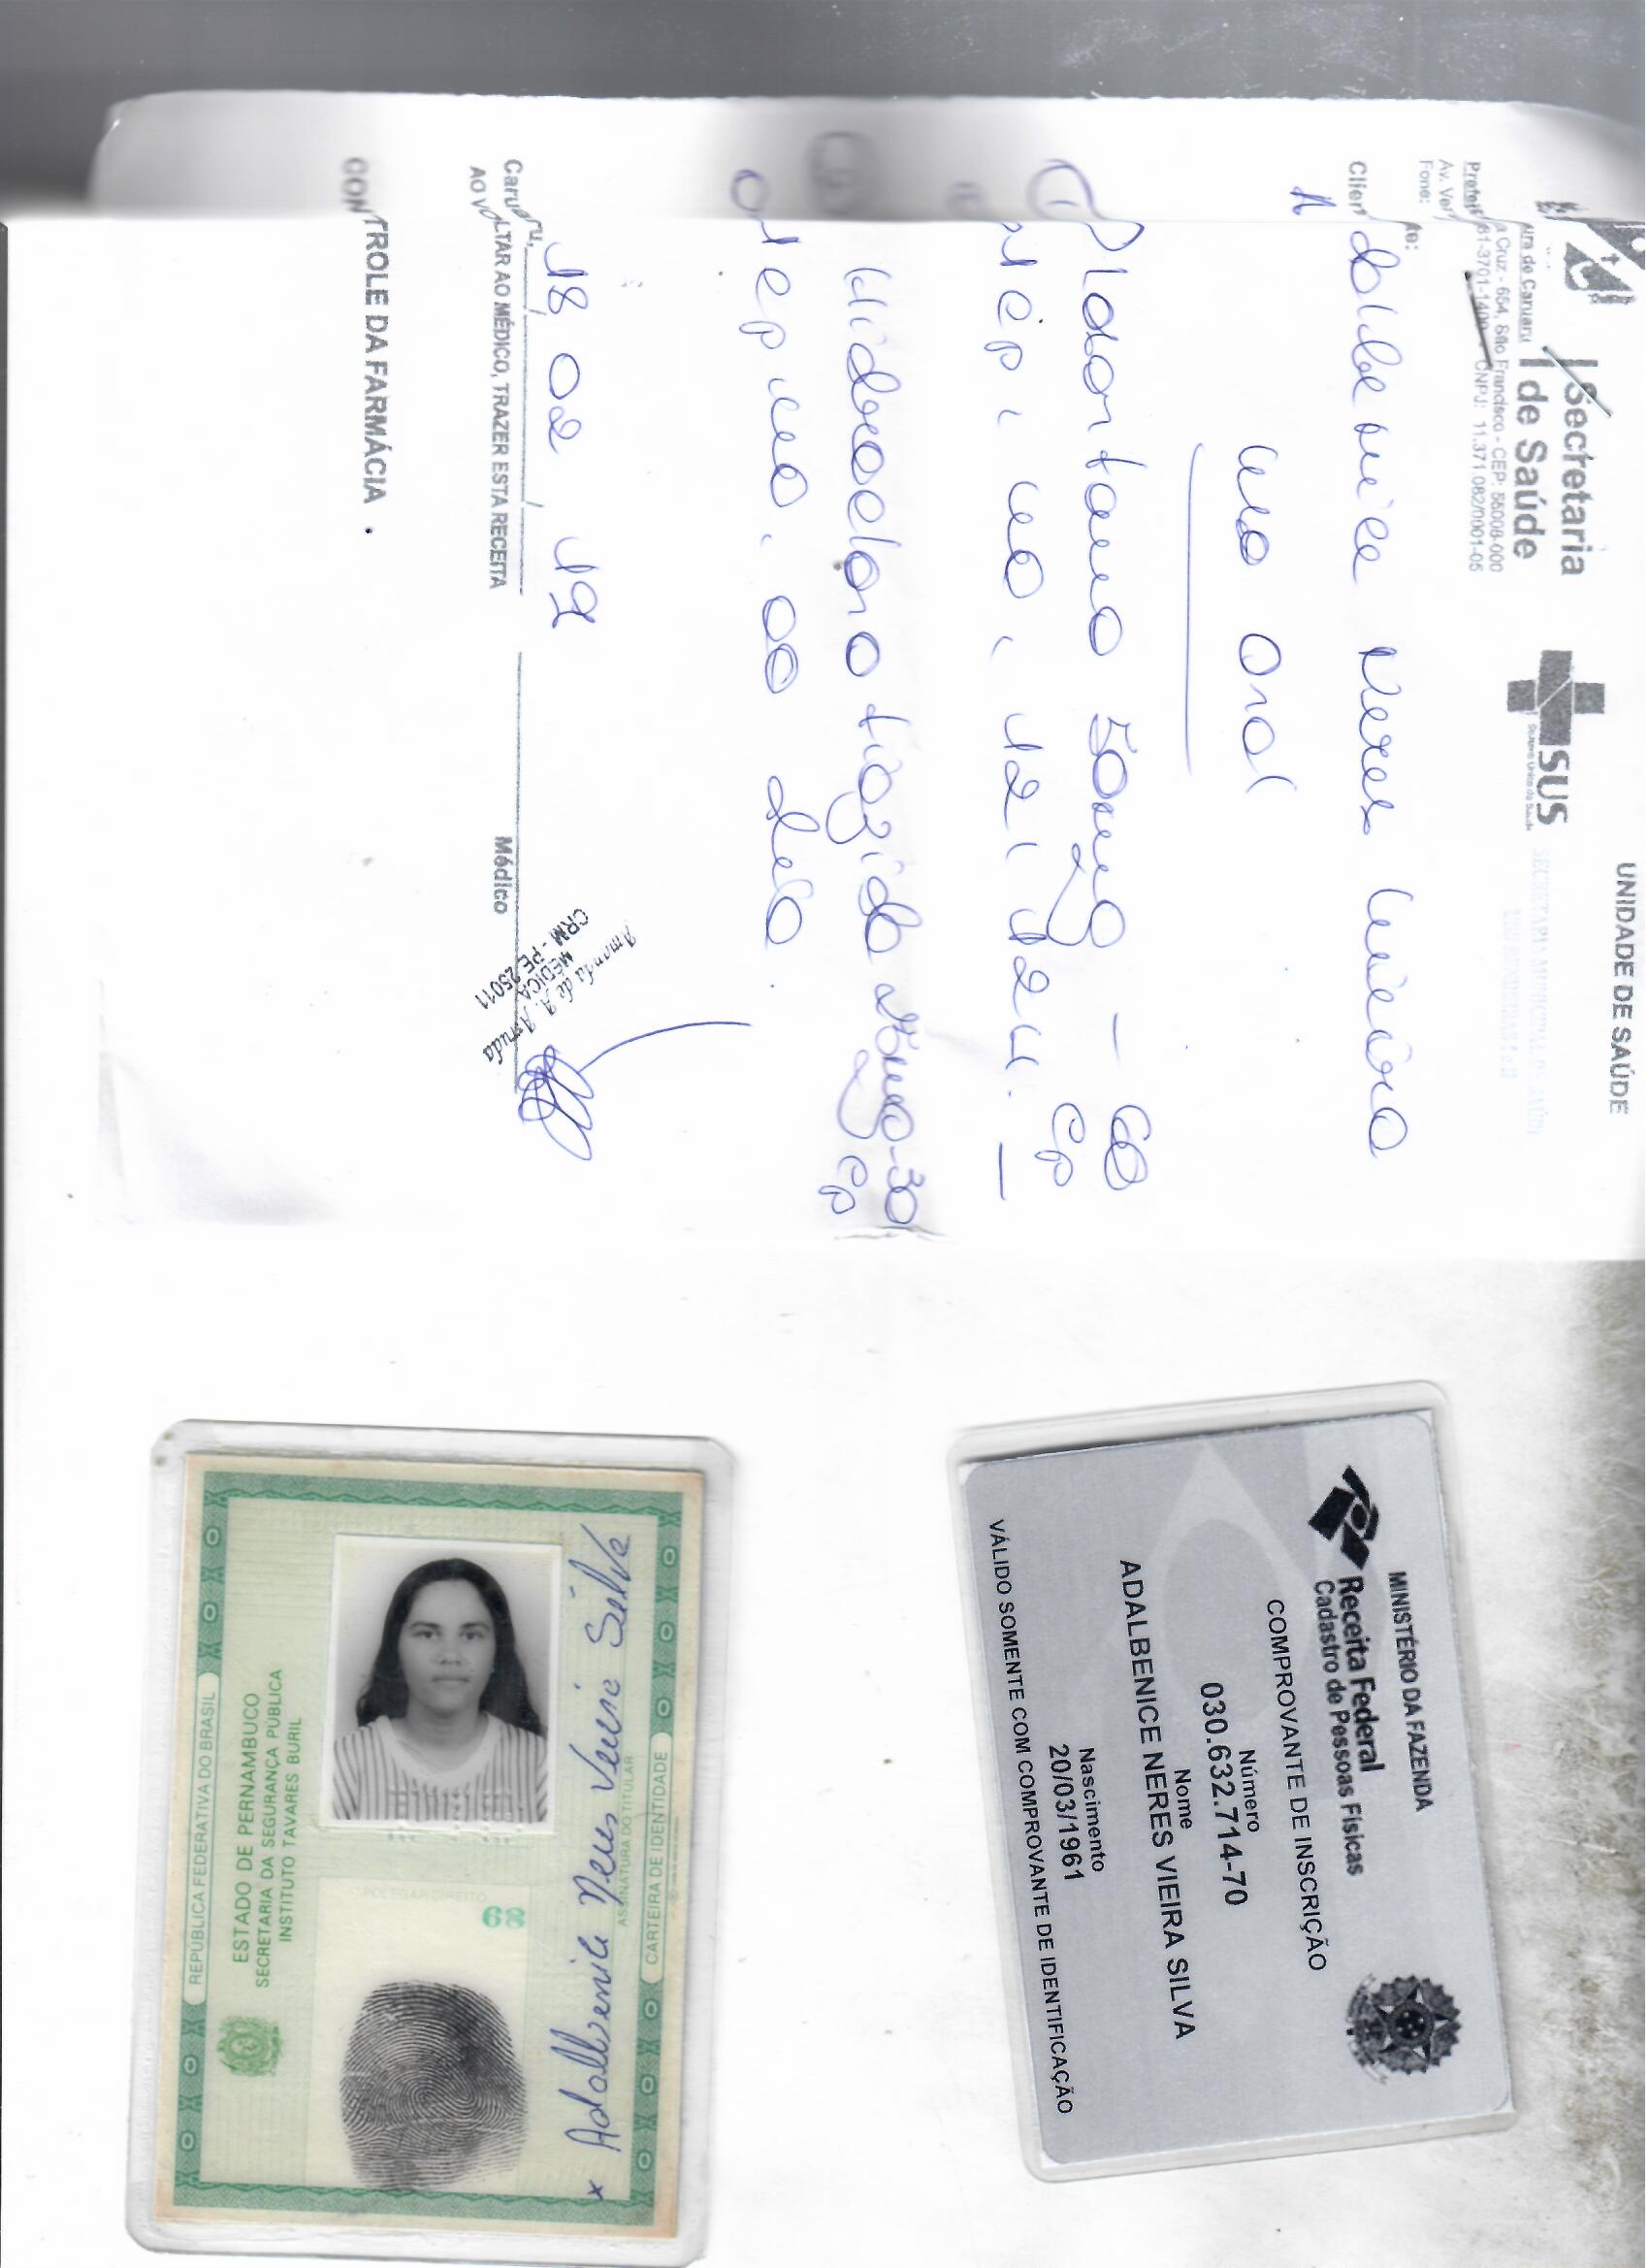 UNIDADE DE SAÚDE
Secretaria
de Saúde
SUS
Sistema Único de Saúde
SECRETARIA MUNICIPAL DE SAÚDE
a Cruz - 654, São Francisco - CEP: 55008-000
81-3701-1400 - CNPJ: 11.371.082/0001-05
Adalbenice Neres Vieira
Uso Oral
Losartana 50mg — 60
cp
1 cp, vo, 12/12H.
Hidroclorotiazida 25mg-30
cp
01 cp vo, ao dia.
Caruaru, 18 / 02 / 19
AO VOLTAR AO MÉDICO, TRAZER ESTA RECEITA
Médico
Amanda de A. Arruda
MÉDICA
CRM - PE 25011
CONTROLE DA FARMÁCIA
MINISTÉRIO DA FAZENDA
Receita Federal
Cadastro de Pessoas Físicas
COMPROVANTE DE INSCRIÇÃO
Número
030.632.714-70
Nome
ADALBENICE NERES VIEIRA SILVA
Nascimento
20/03/1961
VÁLIDO SOMENTE COM COMPROVANTE DE IDENTIFICAÇÃO
REPÚBLICA FEDERATIVA DO BRASIL
ESTADO DE PERNAMBUCO
SECRETARIA DA SEGURANÇA PÚBLICA
INSTITUTO TAVARES BURIL
POLEGAR DIREITO
68
x Adalbenice Neres Vieira Silva
ASSINATURA DO TITULAR
CARTEIRA DE IDENTIDADE